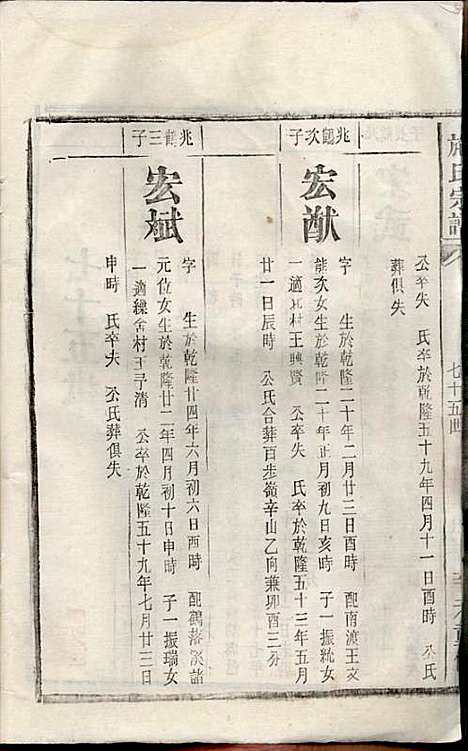 公卒失　氏卒於乾隆五十九年四月十一日酉時　公氏
葬俱失
兆鶴次子
宏猷
字　生於乾隆二十年二月廿三日酉時　配南渡王文
能次女生於乾隆二十年正月初九日亥時　子一振統女
一適瓦村王興賢　公卒失　氏卒於乾隆五十三年五月
廿一日辰時　公氏合葬百步嶺辛山乙向兼卯酉三分
兆鶴三子
宏斌
字　生於乾隆廿四年六月初六日酉時　配鶴落溪諸
元位女生於乾隆廿二年四月初十日申時　子一振瑞女
一適練舍村王子清　公卒於乾隆五十九年七月廿三日
申時　氏卒失　公氏葬俱失
氏宗譜
七十五